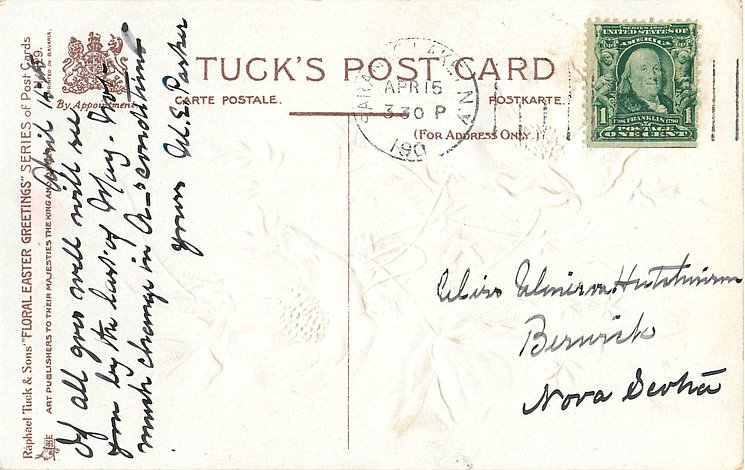 TUCK'S POST CARD
CARTE POSTALE. POSTKARTE.
(For Address Only.)
By Appointment
Raphael Tuck & Sons' "FLORAL EASTER GREETINGS" SERIES of Post Cards
ART PUBLISHERS TO THEIR MAJESTIES THE KING AND
PRINTED IN BAVARIA.
SARANAC LAKE, N.Y.
APR 15
3 30 P
190
SERIES 1902
UNITED STATES OF AMERICA
1 FRANKLIN 1790 1
POSTAGE
ONE CENT
April 15
If all goes well will see
you by the last of May. Not
much change in A—'s condition
yours M.E. Parker
Miss Minerva Hutchinson
Berwick
Nova Scotia